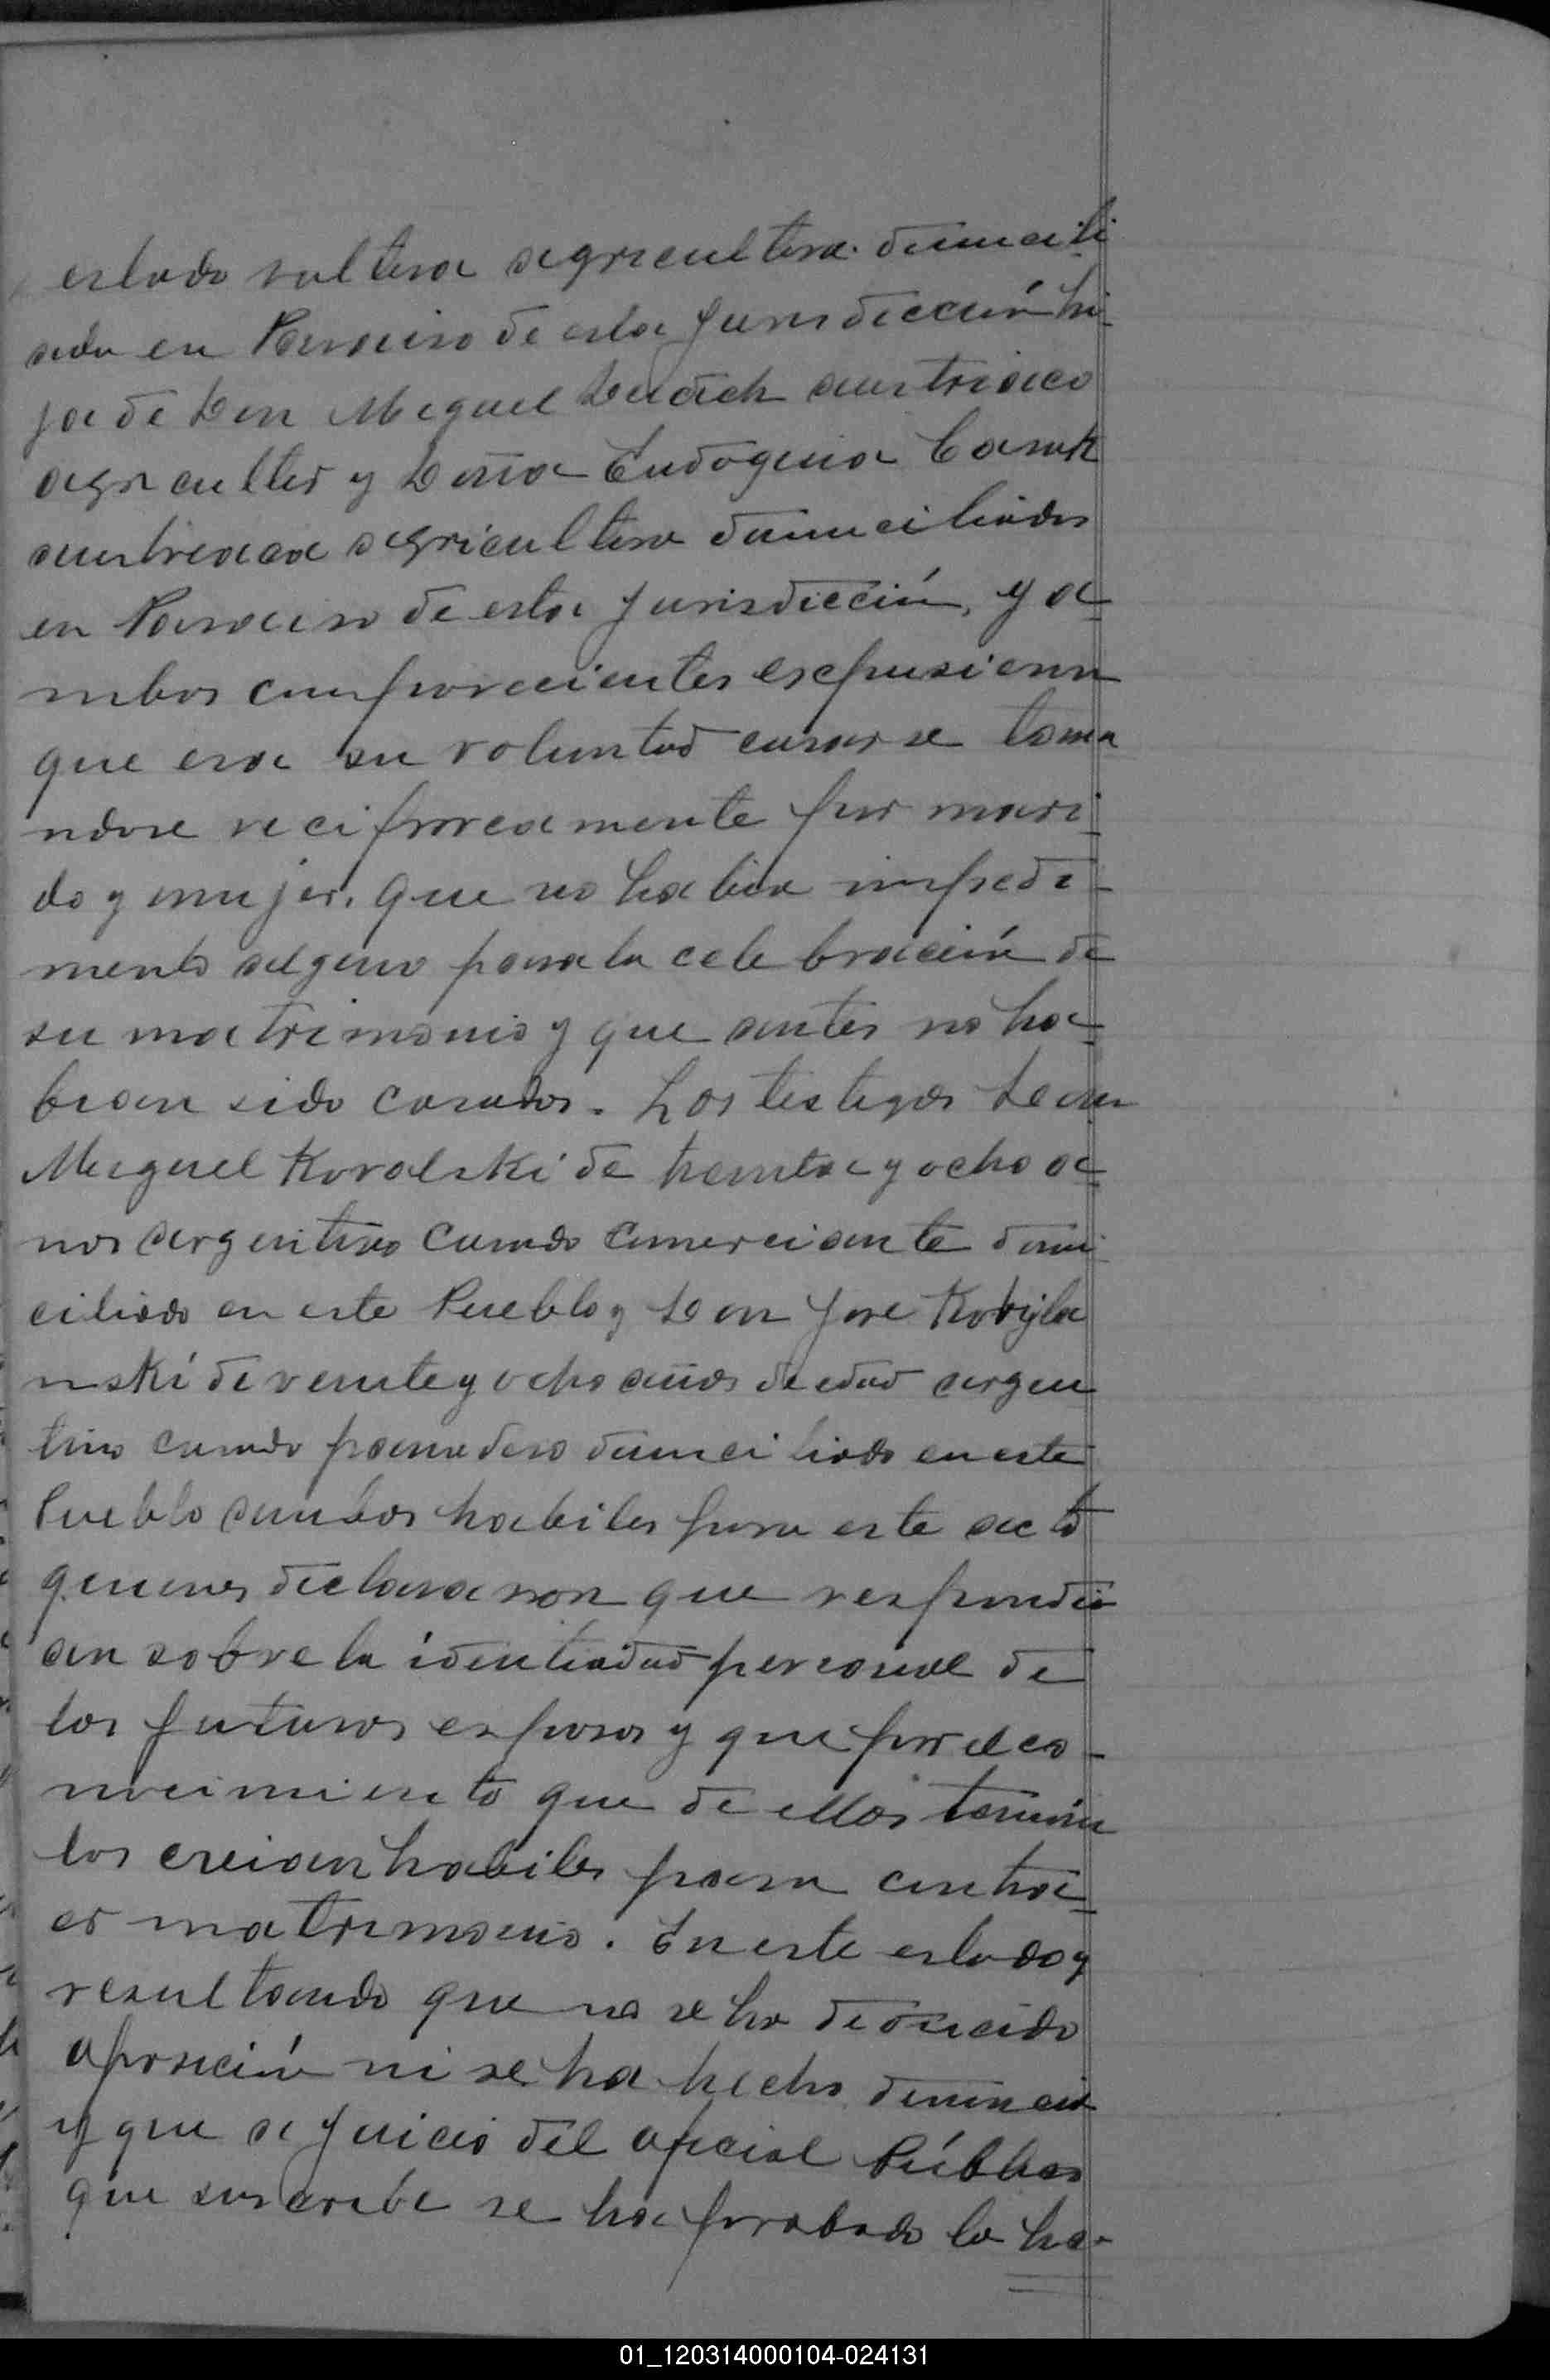 estado soltera agricultora domicili
ada en Paraiso de esta Jurisdicción hi-
ja de Don Miguel austriaco
agricultor y Doña Eudogenia
austriaca agricultora domiciliados
en Paraiso de esta Jurisdicción, y a-
mbos comparecientes espusieron
que era su voluntad casarse toma
ndose reciprocamente por mari-
do y mujer. que no habia impedi-
mento alguno para la celebración de
su matrimonio y que antes no ha-
bian sido casados. Los testigos Don
Miguel Kovalski de treinta y ocho a-
nos argentino casado comerciante domi
ciliado en este Pueblo y Don Jose Kobyla
nski de veinte y ocho años de edad argen
tino casado panadero domiciliado en este
Pueblo ambos habiles para este acto
quienes declararon que respondi
an sobre la identidad personal de
los futuros esposos y que por el co-
nocimiento que de ellos tenian
los creian habiles para contra-
er matrimonio. En este estado y
resultando que no se ha deducido
oposición ni se ha hecho denuncia
y que a Juicio del oficial Público
que suscribe se ha probado la ha-
01_120314000104-024131